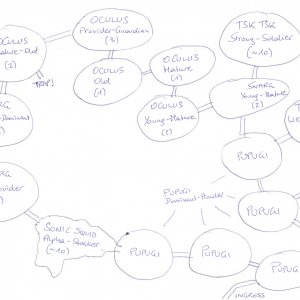 OCULUS
Provider-Guardian
(3)
TSK TSK
Strong-Soldier
(~10)
OCULUS
Mature-Old
(2)
OCULUS
Old
(1)
OCULUS
Mature
(1)
SNARG
Young-Mature
(2)
OCULUS
Young-Mature
(2)
-Dominant
(1)
PUPUGI
PUPUGI
Dominant-Prowler
Provider
(~10)
PUPUGI
SONIC SQUID
Alpha-Soldier
(~10)
PUPUGI
PUPUGI
PUPUGI
INGRESS